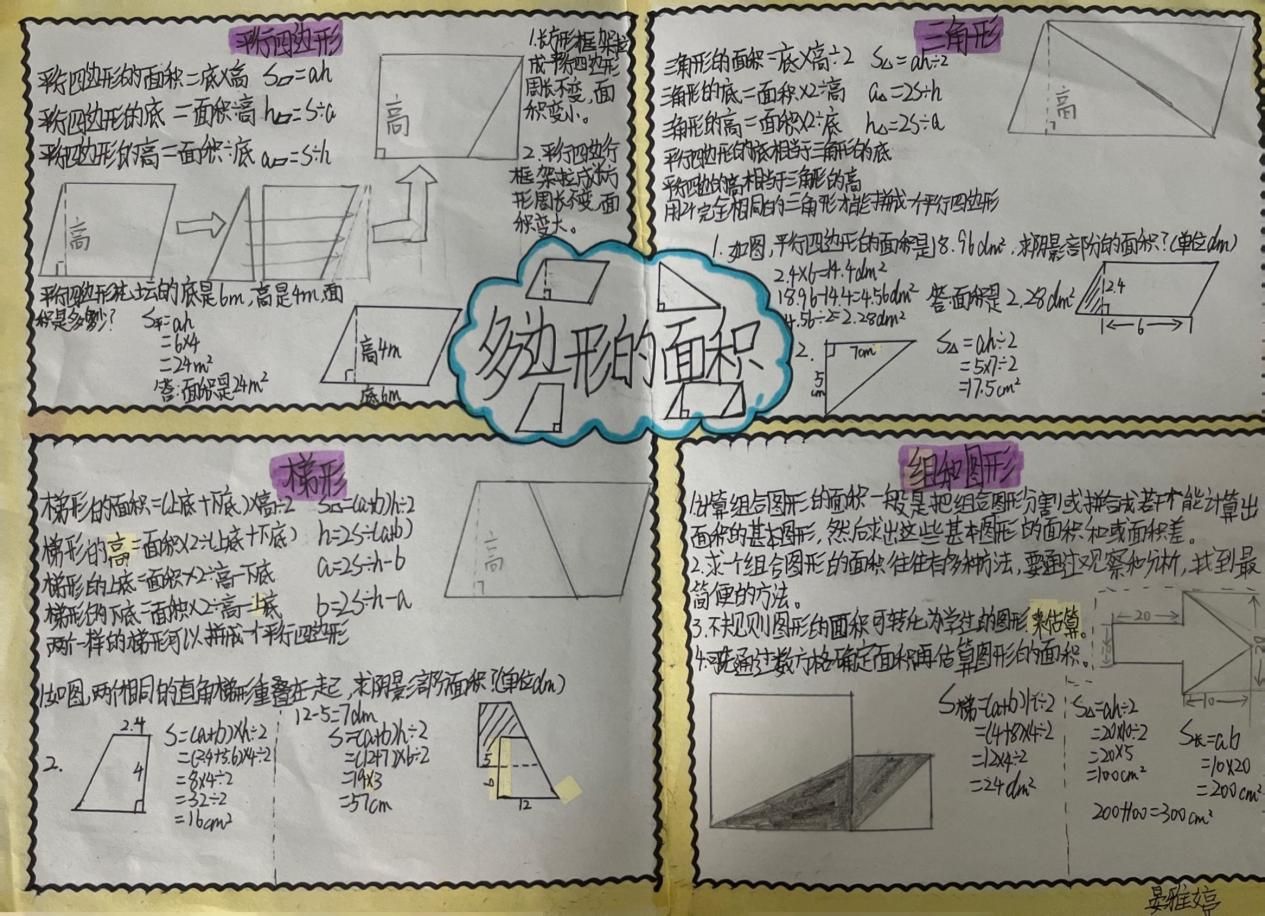 平行四边形
平行四边形的面积=底×高 S▱=ah
平行四边形的底=面积÷高 h▱=S÷a
平行四边形的高=面积÷底 a▱=S÷h
高
高
1.长方形框架拉
成平行四边形
周长不变,面
积变小。
2.平行四边行
框架拉成长方
形周长不变,面
积变大。
平行四边形花坛的底是6m,高是4m,面
积是多少?
S平=ah
=6×4
=24m²
答:面积是24m²
高4m
底6m
三角形
三角形的面积=底×高÷2 S△=ah÷2
三角形的底=面积×2÷高 a△=2S÷h
三角形的高=面积×2÷底 h△=2S÷a
平行四边形的底相当于三角形的底
平行四边的高相当于三角形的高
用2个完全相同的三角形才能拼成一个平行四边形
高
1.如图,平行四边形的面积是18.96dm²,求阴影部分的面积?(单位dm)
2.4×6=14.4dm²
18.96-14.4=4.56dm²
4.56÷2=2.28dm²
答:面积是2.28dm²
2.4
6
2.
7cm
5
cm
S△=ah÷2
=5×7÷2
=17.5cm²
多边形的面积
梯形
梯形的面积=(上底+下底)×高÷2 S=(a+b)h÷2
梯形的高=面积×2÷(上底+下底) h=2S÷(a+b)
梯形的上底=面积×2÷高-下底 a=2S÷h-b
梯形的下底=面积×2÷高-上底 b=2S÷h-a
两个一样的梯形可以拼成一个平行四边形
高
1.如图,两个相同的直角梯形重叠在一起,求阴影部分面积?(单位dm)
2.
2.4
4
S=(a+b)×h÷2
=8×4÷2
=32÷2
=16cm²
12-5=7dm
S=(a+b)h÷2
=(12+7)×6÷2
=19×3
=57cm
5
12
组和图形
1.计算组合图形的面积一般是把组合图形分割或拼合成若干个能计算出
面积的基本图形,然后求出这些基本图形的面积和或面积差。
2.求个组合图形的面积往往有多种方法,要通过观察和分析,找到最
简便的方法。
3.不规则图形的面积可转化为学过的图形来估算。
4.可先通过数方格确定面积再估算图形的面积。
20
10
S梯=(a+b)h÷2
=(4+8)×4÷2
=12×4÷2
=24dm²
S△=ah÷2
=20×10÷2
=20×5
=100cm²
S长=ab
=10×20
=200cm²
200+100=300cm²
晏雅婷